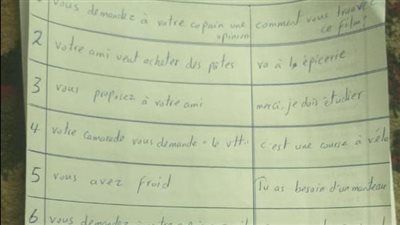 vous demandez à votre copain une opinion
comment vous trouvez ce film?
2
votre ami veut acheter des pâtes
va à la épicerie
3
vous proposez à votre ami
merci, je dois étudier
4
votre camarade vous demande : le vtt.
c'est une course à vélo
5
vous avez froid
Tu as besoin d'un manteau
6
vous